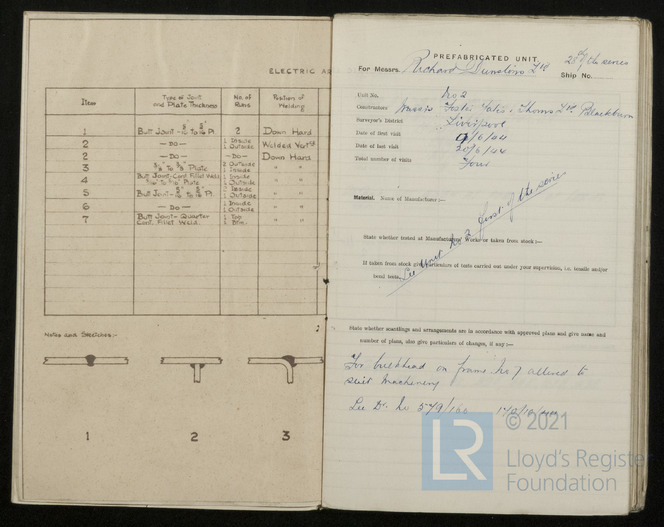 ELECTRIC AR
Item
Type of Joint and Plate Thickness
No. of Runs
Position of Welding
1 Butt Joint - 2 Down Hand
2 — DO — 1 Inside 1 Outside Welded Vert
2 — DO — — DO — Down Hand
3 to Plate 2 Outside 1 Inside " "
4 Butt Joint - Cont. Fillet Weld Plate 1 Inside 1 Outside " "
5 Butt Joint - to Pl 1 Inside 1 Outside " "
6 — DO — 1 Inside 1 Outside " "
7 Butt Joint - Quarter Cont. Fillet Weld. 1 Top 1 Btm. " "
Notes and Sketches:-
1
2
3
PREFABRICATED UNIT.
25th series
For Messrs. Richard Dunston Ltd
Ship No.
Unit No. No 2
Constructors Messrs Foster Yates & Thoms Ltd. Blackburn
Surveyor's District Liverpool
Date of first visit 9/6/44
Date of last visit 20/6/44
Total number of visits Four
Material. Name of Manufacturer:—
State whether tested at Manufacturers' Works or taken from stock:—
If taken from stock give particulars of tests carried out under your supervision, i.e. tensile and/or
bend tests.
See Unit No 2 first of the series
State whether scantlings and arrangements are in accordance with approved plans and give name and
number of plans, also give particulars of changes, if any:—
For bulkhead on frame No 7 altered to
suit Machinery
See Dr. No 579/
© 2021
LR
Lloyd's Register
Foundation